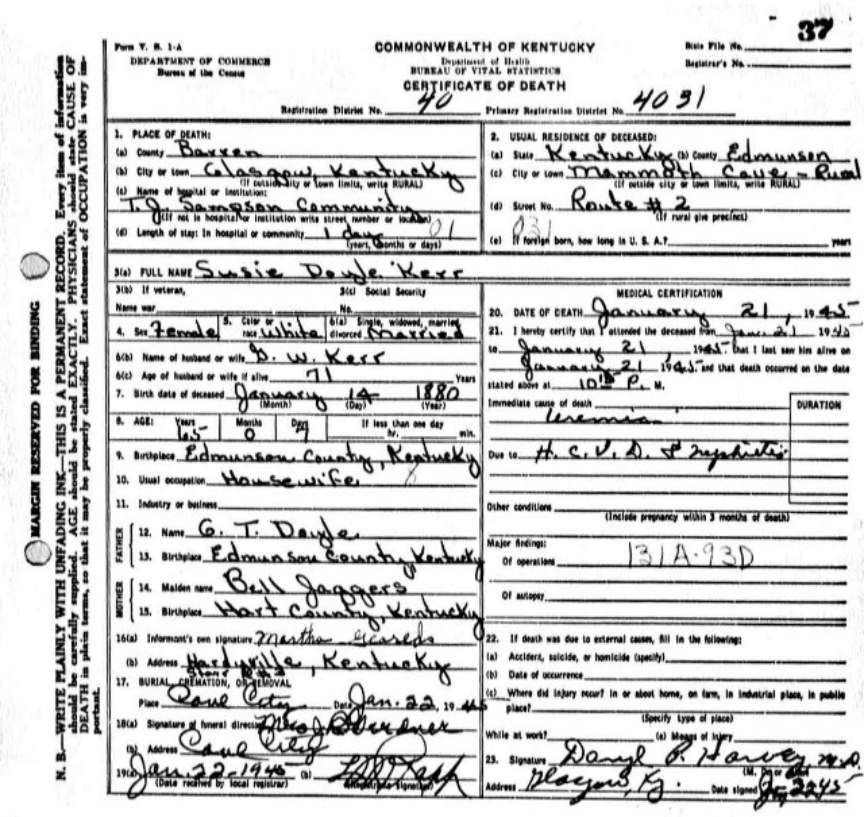 37
Form V. S. 1-A
DEPARTMENT OF COMMERCE
Bureau of the Census
COMMONWEALTH OF KENTUCKY
Department of Health
BUREAU OF VITAL STATISTICS
CERTIFICATE OF DEATH
State File No.
Registrar's No.
Registration District No. 40 Primary Registration District No. 4031
1. PLACE OF DEATH:
(a) County Barren
(b) City or town Glasgow, Kentucky
(If outside city or town limits, write RURAL)
(c) Name of hospital or institution:
T. J. Sampson Community
(If not in hospital or institution write street number or location)
(d) Length of stay: In hospital or community 1 day 01
(years, months or days)
2. USUAL RESIDENCE OF DECEASED:
(a) State Kentucky (b) County Edmunsen
(c) City or town Mammoth Cave - Rural
(If outside city or town limits, write RURAL)
(d) Street No. Route # 2
(If rural give precinct)
031
(e) If foreign born, how long in U. S. A.? years
3(a) FULL NAME Susie Doyle Kerr
3(b) If veteran, 3(c) Social Security
Name war No.
4. Sex Female 5. Color or race White 6(a) Single, widowed, married, divorced Married
6(b) Name of husband or wife G. W. Kerr
6(c) Age of husband or wife if alive 71 Years
7. Birth date of deceased January 14 1880
(Month) (Day) (Year)
8. AGE: Years Months Days If less than one day
65 0 7 hr. min.
9. Birthplace Edmunson County, Kentucky
10. Usual occupation Housewife 8
11. Industry or business
FATHER
12. Name G. T. Doyle
13. Birthplace Edmunson County, Kentucky
MOTHER
14. Maiden name Bell Jaggers
15. Birthplace Hart County, Kentucky
16(a) Informant's own signature Martha
(b) Address Hardyville, Kentucky
17. BURIAL, CREMATION, OR REMOVAL
Place Cave City Date Jan. 22, 1945
18(a) Signature of funeral director
(b) Address Cave City
19(a) Jan. 22-1945 (b)
(Date received by local registrar) (Registrar's signature)
MEDICAL CERTIFICATION
20. DATE OF DEATH January 21, 1945
21. I hereby certify that I attended the deceased from Jan. 21 1945
to January 21, 1945 that I last saw him alive on
January 21 1945 and that death occurred on the date
stated above at 10 P. M.
Immediate cause of death DURATION
Uremia
Due to H. C. V. D. & Nephritis
Other conditions
(Include pregnancy within 3 months of death)
Major findings:
Of operations 131A-93D
Of autopsy
22. If death was due to external causes, fill in the following:
(a) Accident, suicide, or homicide (specify)
(b) Date of occurrence
(c) Where did injury occur? In or about home, on farm, in industrial place, in public
place?
(Specify type of place)
While at work? (e) Means of injury
23. Signature Daryl P. Harvey M.D.
(M. D. or other)
Address Glasgow, Ky. Date signed
MARGIN RESERVED FOR BINDING
N. B.—WRITE PLAINLY WITH UNFADING INK—THIS IS A PERMANENT RECORD. Every item of information
should be carefully supplied. AGE should be stated EXACTLY. PHYSICIANS should state CAUSE OF
DEATH in plain terms, so that it may be properly classified. Exact statement of OCCUPATION is very im-
portant.